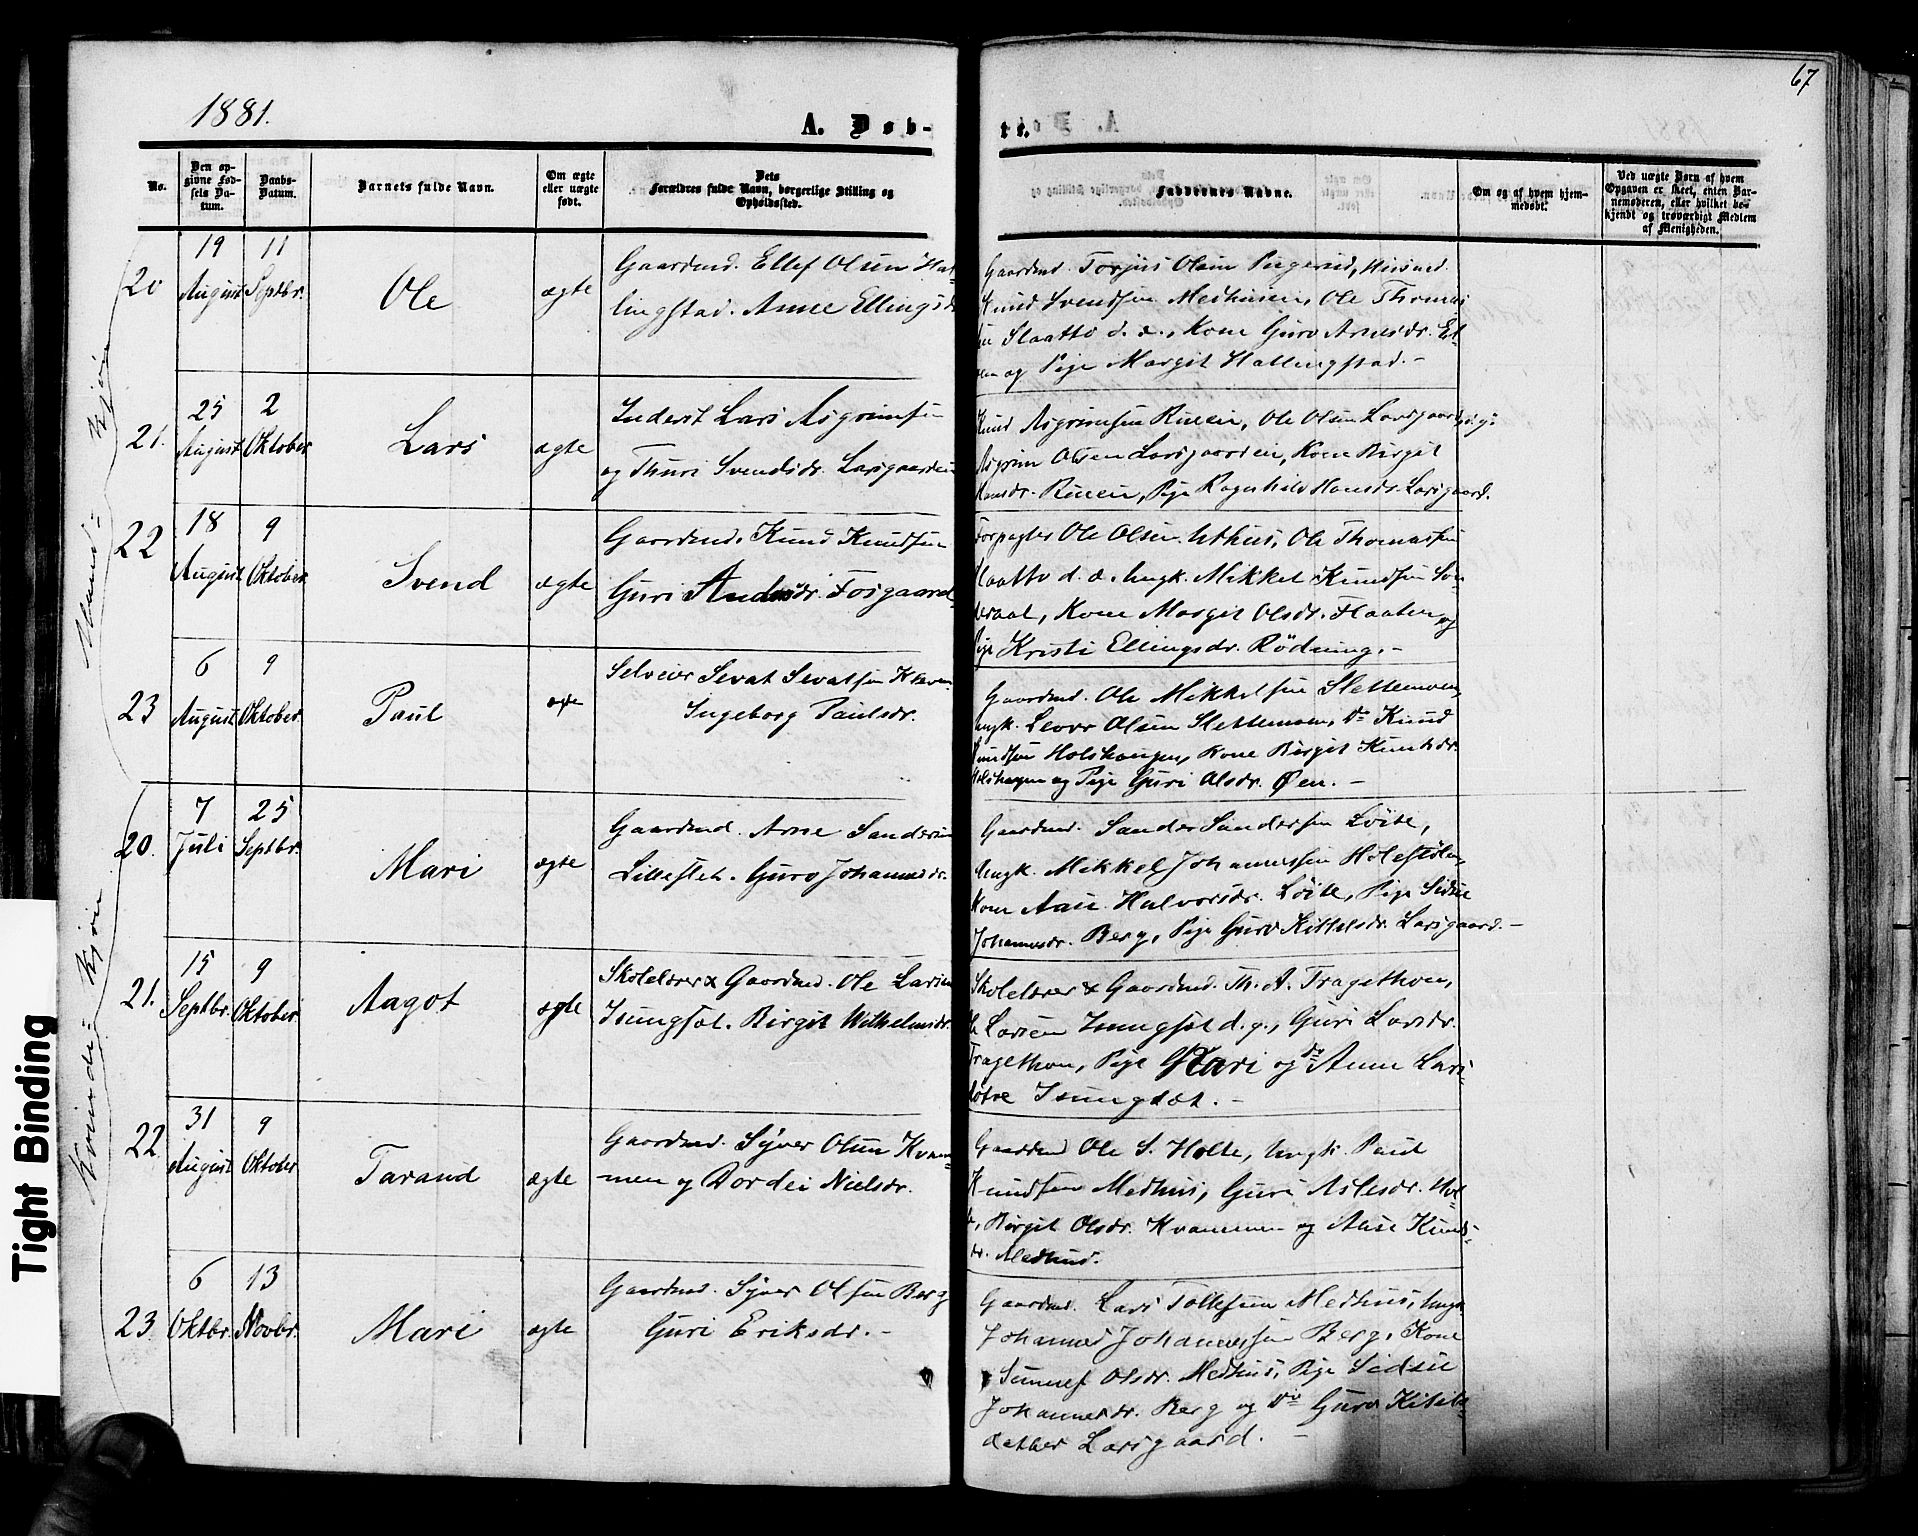 1881.
67
A. Døb-
te.
No.
Den op-
givne Fød-
sels Da-
tum.
Daabs-
Datum.
Barnets fulde Navn.
Om ægte
eller uægte
født.
Dets
Forældres fulde Navn, borgerlige Stilling og
Opholdssted.
Faddernes Navne.
Om og af hvem hjem-
medøbt.
Ved uægte Børn af hvem
Opgaven er skeet, enten Bar-
nemoderen, eller hvilket be-
kjendt og troværdigt Medlem
af Menigheden.
Mand: Kjön
20
19
August
11
Septbr.
Ole
ægte
Gaardmd. Ellef Olsen Hal-
lingstad. Anne Ellingsdr
Gaardmd. Torjus Olsen
Knud Svendsen Medhusen, Ole Thomas
Slaatto d. æ., Kone Guro Arnesdr.
og Pige Margit Hallingstad. -
21.
25
August
2
Oktober
Lars
ægte
Inderst Lars Asgrimsen
og Thuri Svendsdr. Larsgaarden
Knud Asgrimsen Rueen, Ole Olsen Larsgaard, d. y.
Asgrim Olsen Larsgaarden, Kone Birgit
Hansdr. Rueen, Pige Ragnhild Hansdr. Larsgaard.
22
18
August
9
Oktober
Svend
ægte
Gaardmd. Knud Knudsen
Guri Andersdr. Fosgaard
Forpagter Ole Olsen Uthus, Ole Thomassen
Slaatto d. æ. Ungk. Mikkel Knudsen Sön-
deraal, Kone Margit Olsdr. Flaaten og
Pige Kristi Ellingsdr. Rödning. -
23
6
August
9
Oktober
Paul
ægte
Selveier Sevat Sevatsen
Ingeborg Paulsdr.
Gaardmd. Ole Mikkelsen Slettemoen,
Ungk. Levor Olsen Slettemoen, Do Knud
Knudsen Holshagen, Kone Birgit Knutsdr.
Holshagen og Pige Guri Olsdr. Øen. -
Kvinde: Kjön
20.
7
Juli
25
Septbr.
Mari
ægte
Gaardmd. Arne Sandersen
Lilleslet. Guro Johannesdr.
Gaardmd. Sander Sandersen Löite,
Ungk. Mikkel Johannessen Holestölen,
Kone Aase Halvorsdr. Löite, Pige Sidsel
Johannesdr. Berg, Pige Guro Kittelsdr. Larsgaard. -
21.
15
Septbr.
9
Oktober
Aagot
ægte
Skolelærer & Gaardmd. Ole Larsen
Isungset. Birgit Wilhelmsdr.
Skolelærer & Gaardmd. Th. A. Tragethon,
Ole Larsen Isungset d. y., Guri Larsdr.
Tragethon, Pige Mari og Do Anne Lars-
døtre Isungset. -
22
31
August
9
Oktober
Tarand
ægte
Gaardmd. Syver Olsen Kvam-
men og Dordei Nielsdr.
Gaardmd Ole S. Holte, Ungk. Paul
Knudsen Medhus, Guri Aslesdr. Hol-
te, Birgit Olsdr. Kvammen og Aase Knuds-
dr. Medhus.
23
6
Oktbr.
13
Novbr.
Mari
ægte
Gaardmd. Syver Olsen Berg
Guri Eriksdr. -
Gaardmd. Lars Tollefsen Medhus, Ungk.
Johannes Johannessen Berg, Kone
Sunnef Olsdr. Medhus, Pige Sidsel
Johannesdr. Berg og Do Guro Kittils-
datter Larsgaard. -
Tight Binding